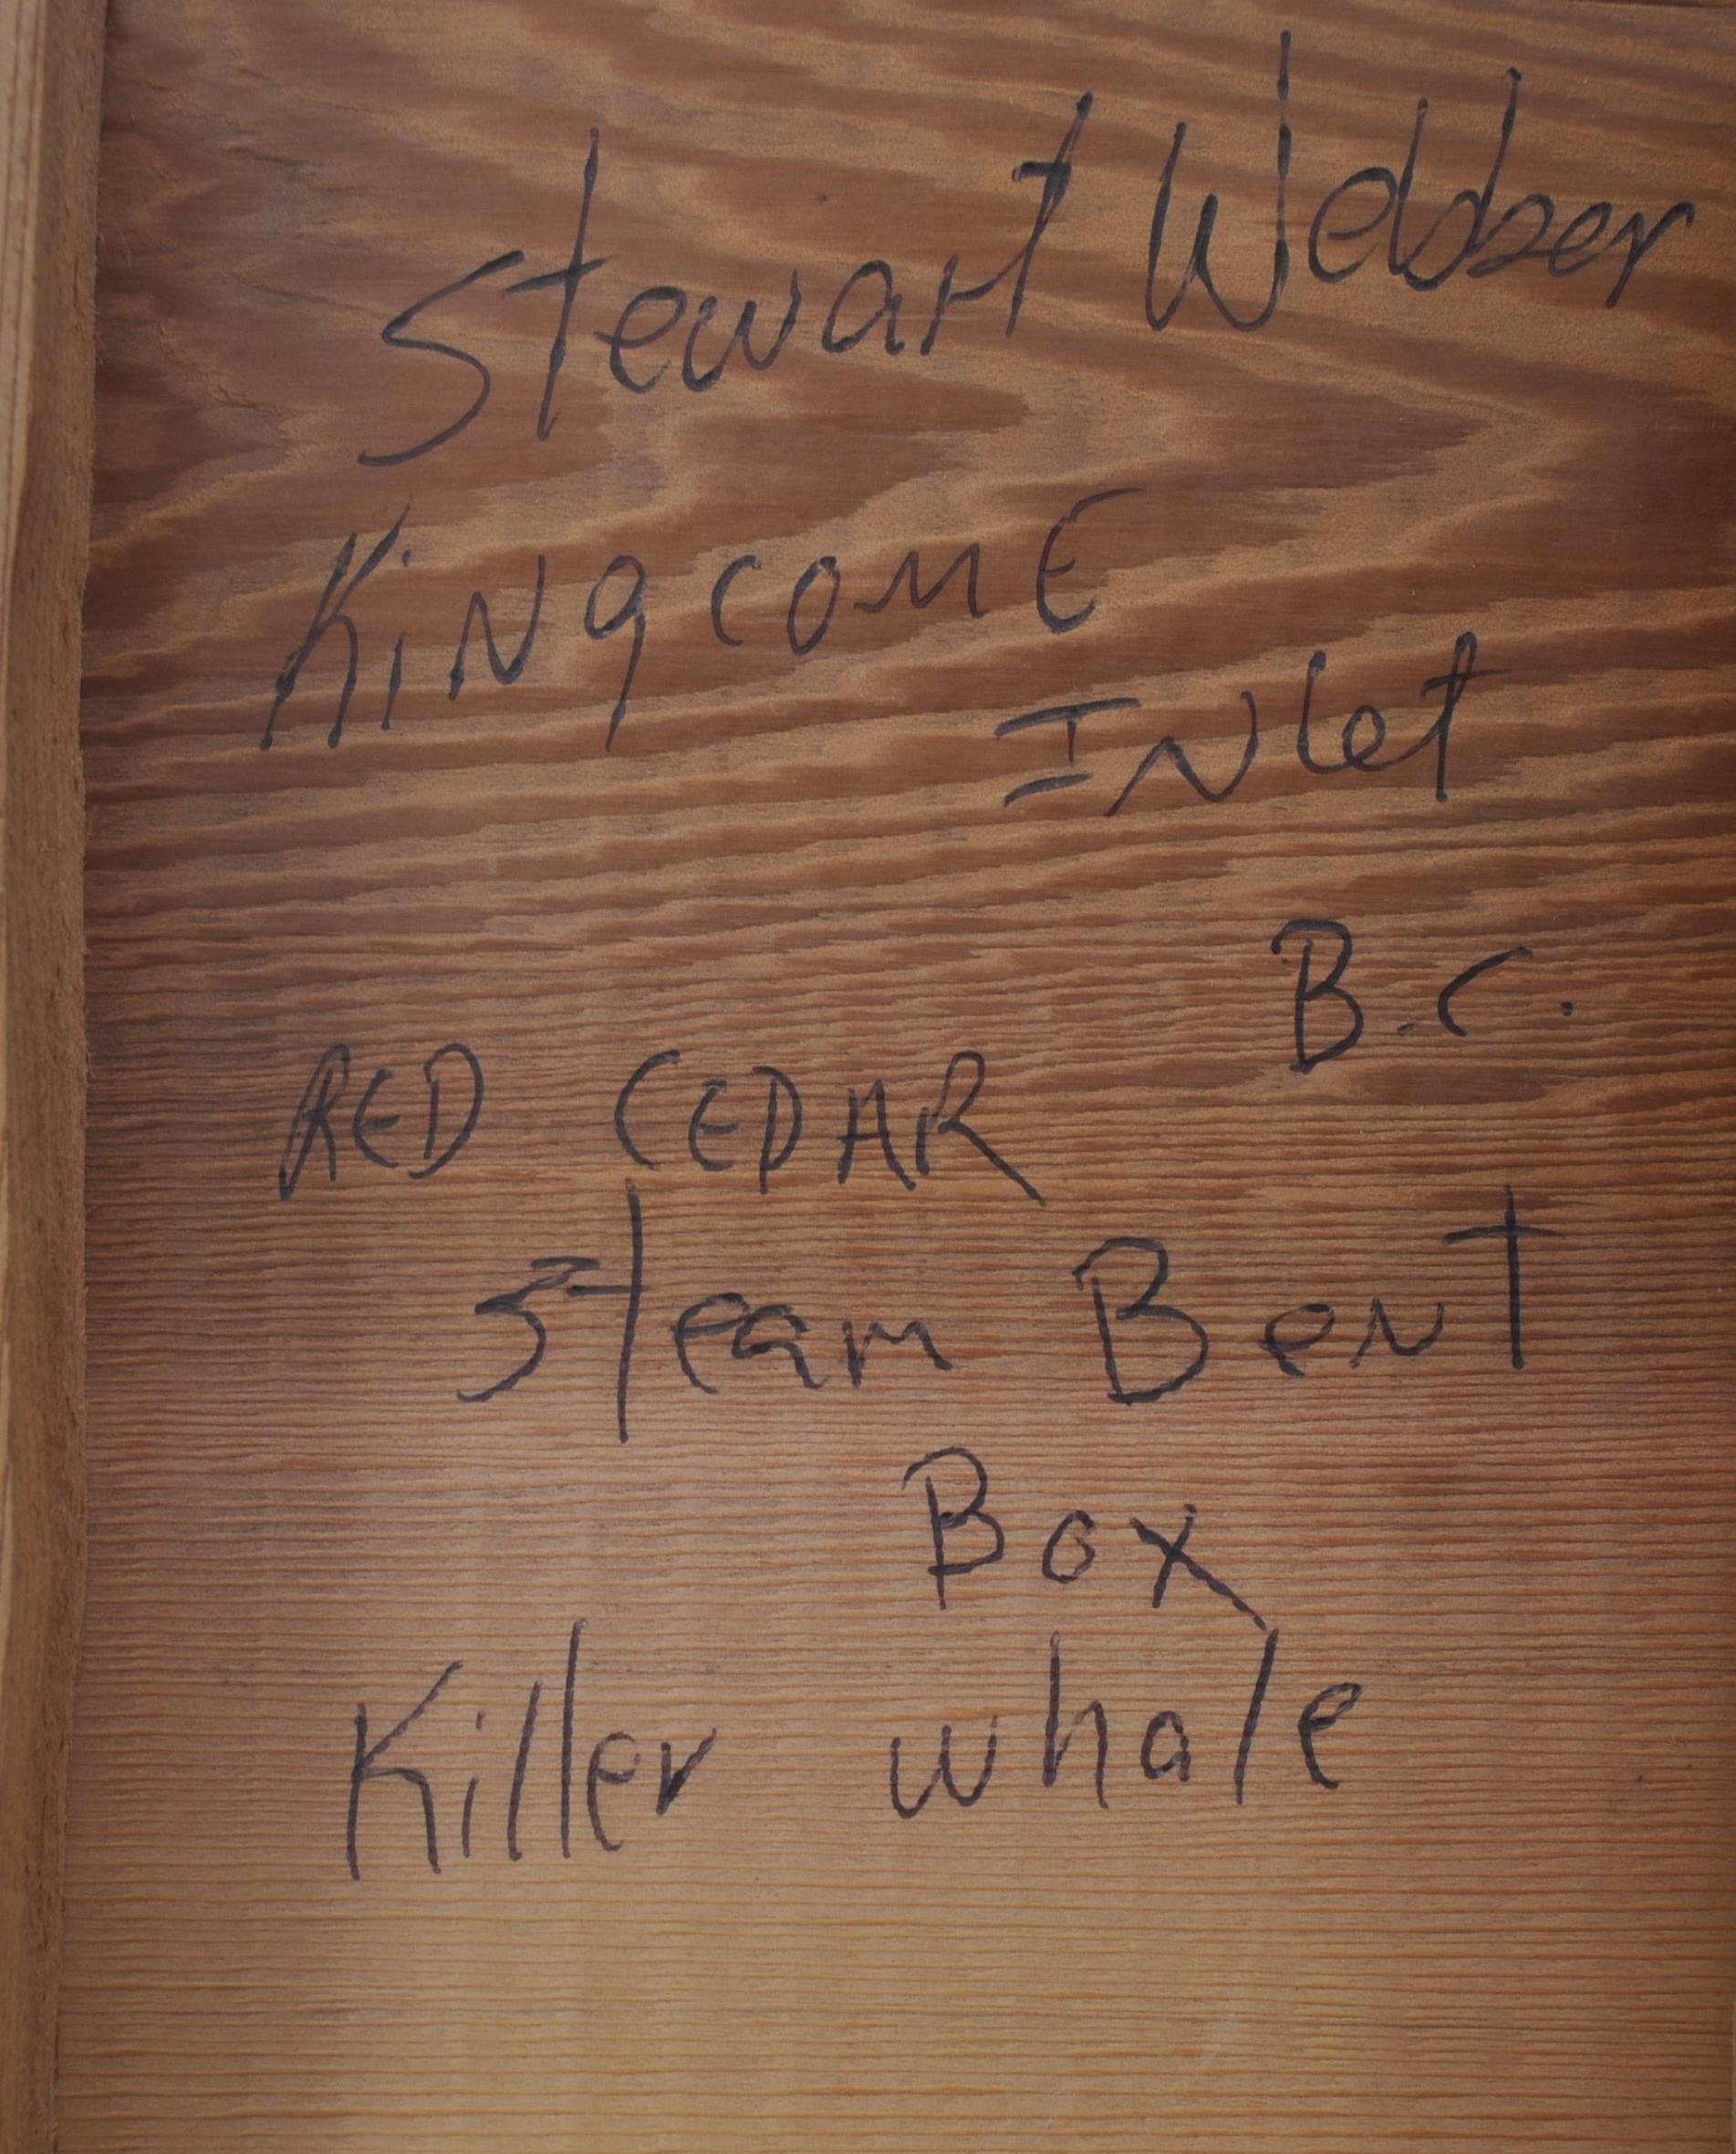 Stewart Webber
KiNgcomE
INlet
B.C.
RED CEDAR
Steam BeNt
Box
Killer whale